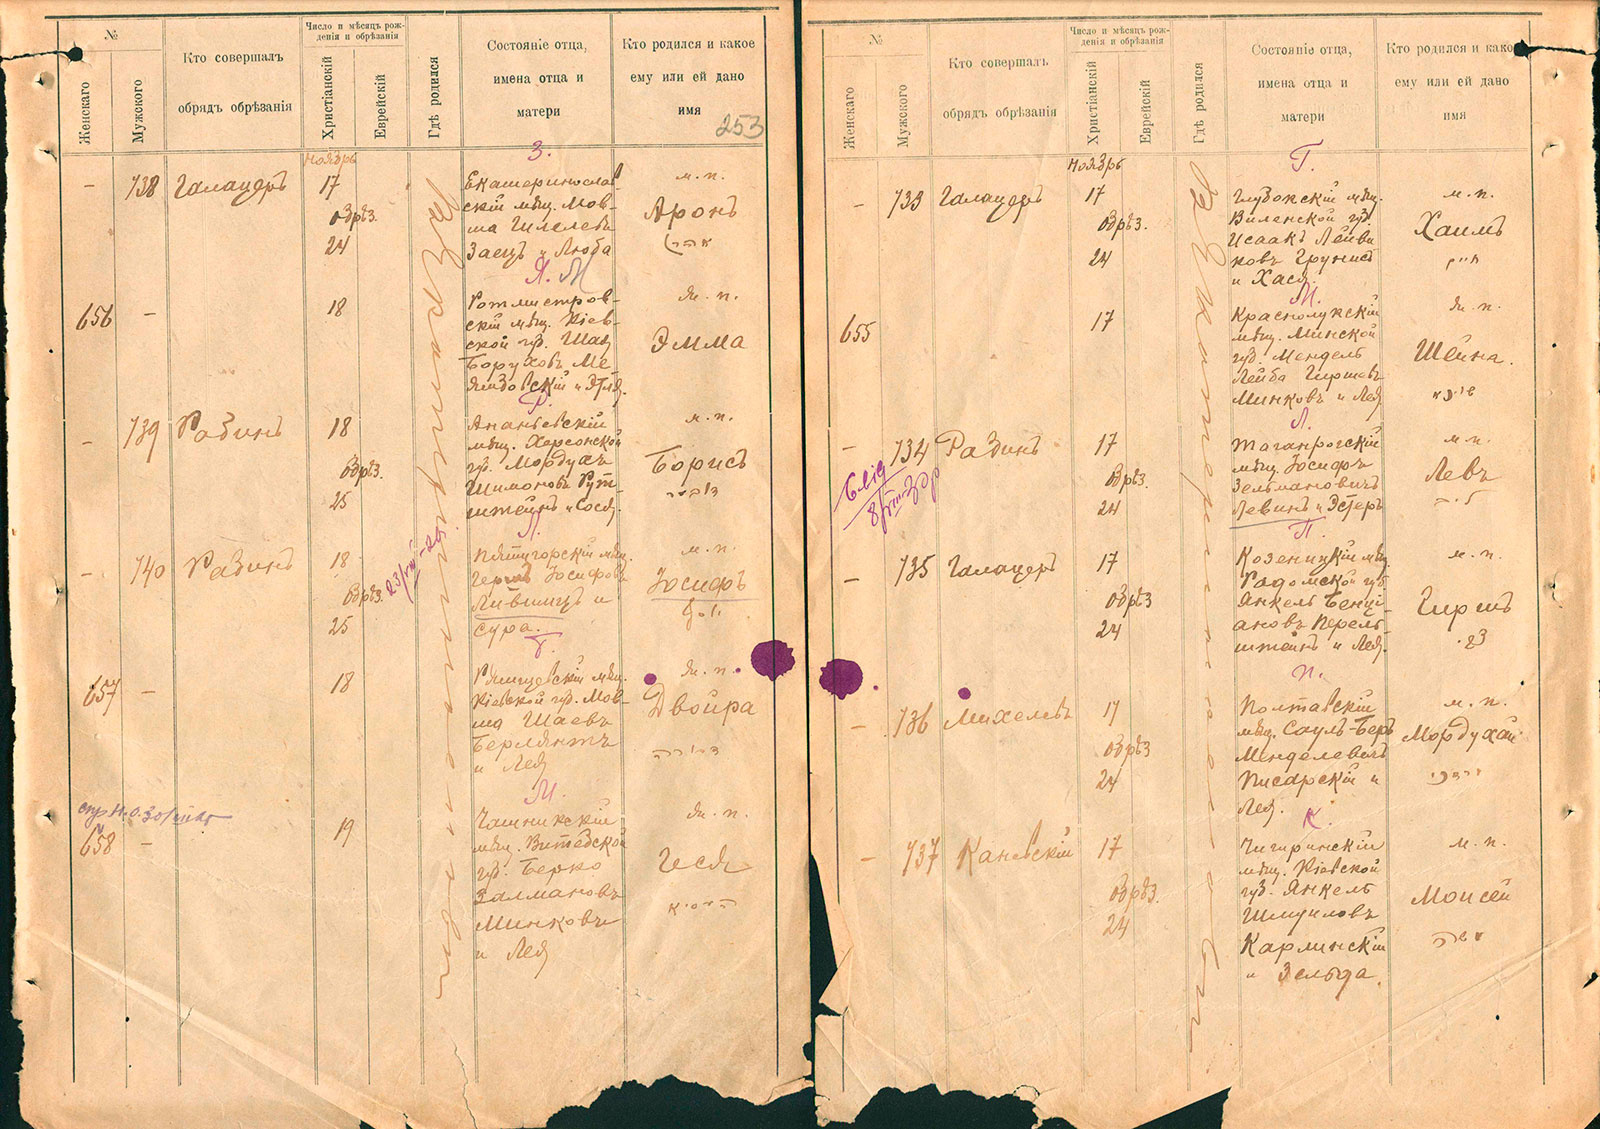 №
Женскаго
Мужского
Кто совершалъ
обрядъ обрѣзанія
Число и мѣсяцъ рож-
денія и обрѣзанія
Христіанскій
Еврейскій
Гдѣ родился
Состояніе отца,
имена отца и
матери
Кто родился и какое
ему или ей дано
имя
253
З.
Ноябрь
738 Галацеръ 17
обрѣз.
24
Екатеринослав-
скій мѣщ. Мов-
ша Шлелевъ
Заецъ и Люба
м. п.
Аронъ
Я. М
656 –
18
Ротмистров-
скій мѣщ. Кіев-
ской губ. Шая
Боруховъ Ме-
и Этля
ж. п.
Эмма
Р.
– 739 Рабинъ 18
обрѣз.
25
Ананьевскій
мѣщ. Херсонской
губ. Мордухъ
Шимоновъ Рут-
штейнъ и Сося.
м. п.
Борисъ
Л.
– 740 Рабинъ 18
обрѣз.
25
Пятигорскій мѣщ.
Гершъ Іосифовъ
Лившицъ и
Сура.
м. п.
Іосифъ
יוסף
Б.
657 –
18
мѣщ.
Кіевской губ. Мов-
ша Шаевъ
Берлянтъ
и Лея
ж. п.
Двойра
דווירה
М.
658 –
19
Чашникскій
мѣщ. Витебской
губ. Берко
Залмановъ
Минковъ
и Лея
ж. п.
Геся
№
Женскаго
Мужского
Кто совершалъ
обрядъ обрѣзанія
Число и мѣсяцъ рож-
денія и обрѣзанія
Христіанскій
Еврейскій
Гдѣ родился
Состояніе отца,
имена отца и
матери
Кто родился и какое
ему или ей дано
имя
Г.
Ноябрь
– 733 Галацеръ 17
обрѣз.
24
Глубокскій мѣщ.
Виленской губ.
Исаакъ Лейви-
ковъ
и Хася
м. п.
Хаимъ
חיים
М.
655
17
Краснолукскій
мѣщ. Минской
губ. Мендель
Лейба Гиршевъ
Минковъ и Лея
ж. п.
Шейна.
שיינא
Л.
– 734 Рабинъ 17
обрѣз.
24
Таганрогскій
мѣщ. Іосифъ
Зельмановичъ
Левинъ и Эстеръ
м. п.
Левъ
П.
– 735 Галацеръ 17
обрѣз
24
Козеницкій мѣщ.
Радомской губ.
Янкель Бенці-
ановъ Перель-
штейнъ и Лея.
м. п.
Гиршъ
П.
– 736 Михелевъ 17
обрѣз
24
Полтавскій
мѣщ. Сауль-Беръ
Менделевичъ
Писарскій и
Лея.
м. п.
Мордухай
מרדכי
К.
– 737 Каневскій 17
обрѣз.
24
Чигиринскій
мѣщ. Кіевской
губ. Янкель
Шмуиловъ
Карлинскій
и Зельда.
м. п.
Моисей
משה